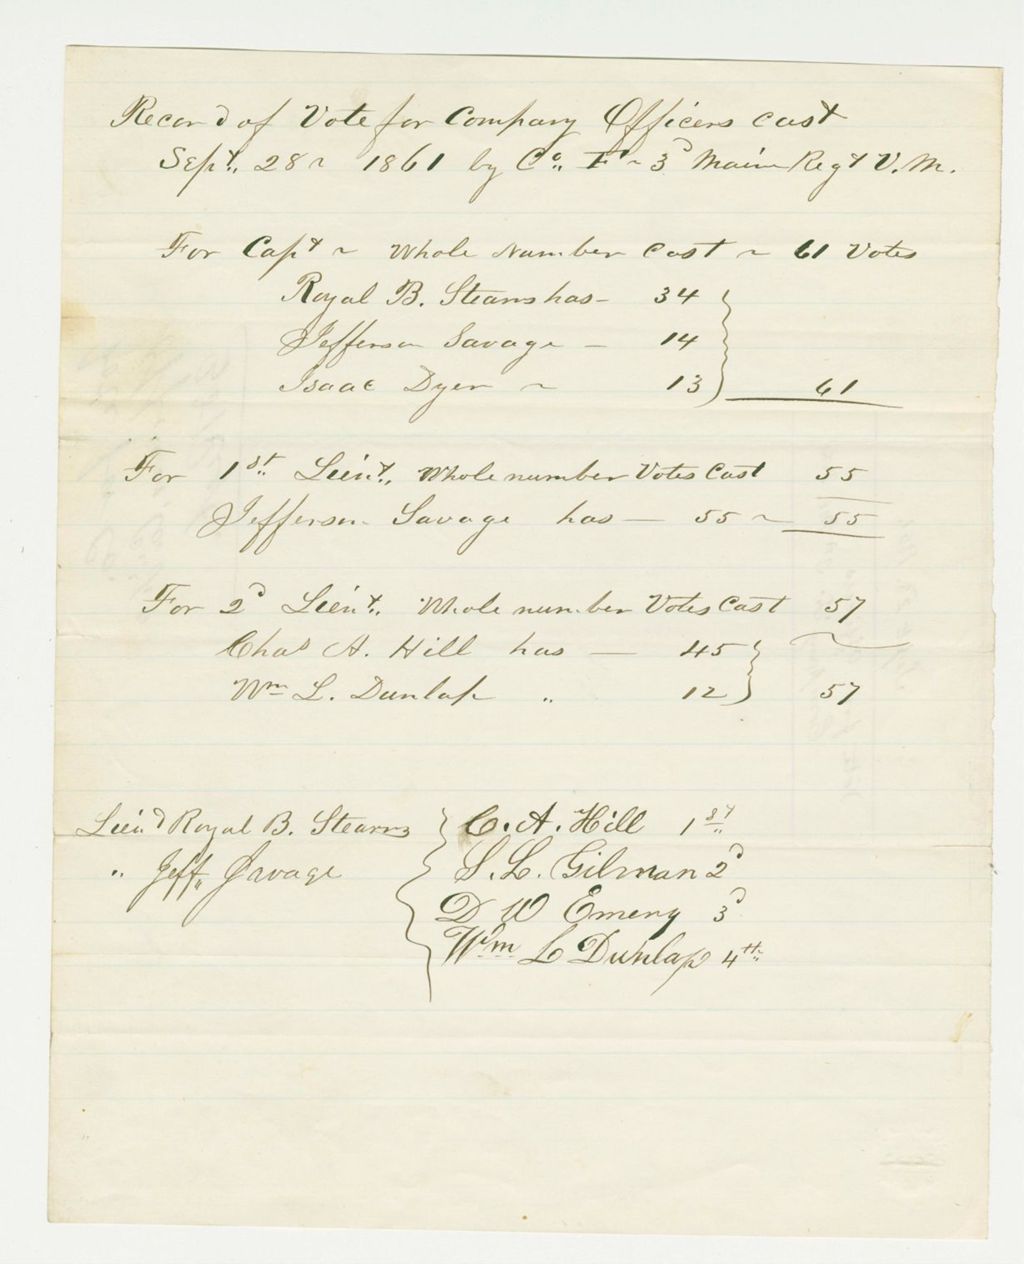 Record of Vote for Company Officers cast
Sept. 28 ~ 1861 by Co. F ~ 3d Maine Regt V. M.
For Capt ~ Whole Number Cast ~ 61 Votes
Royal B. Stearns has - 34
Jefferson Savage - 14
Isaac Dyer ~ 13 61
For 1st Lieut. Whole number Votes Cast 55
Jefferson Savage has - 55 ~ 55
For 2d Lieut. Whole number Votes Cast 57
Chas A. Hill has - 45
Wm L. Dunlap " 12 57
Lieut Royal B. Stearns
" Jeff. Savage
C. A. Hill 1st
S. L. Gilman 2d
D W Emery 3d
Wm L Dunlap 4th